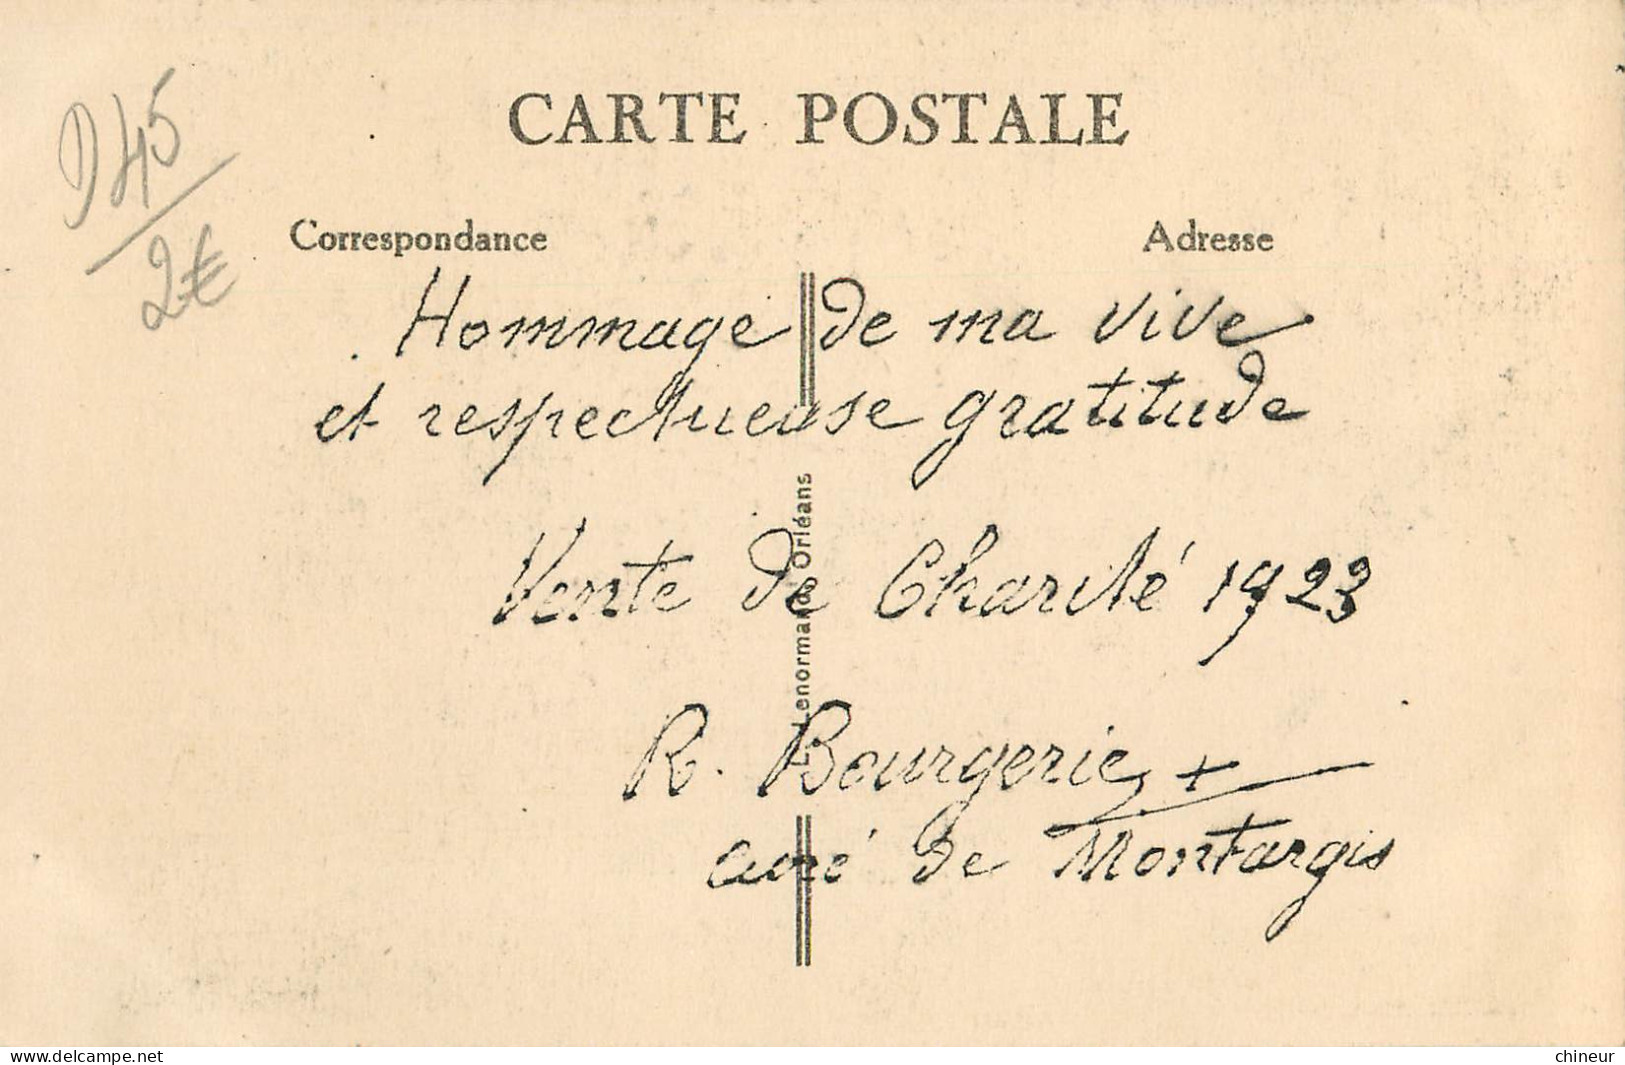 D45
2€
CARTE POSTALE
Correspondance
Adresse
Hommage de ma vive
et respectueuse gratitude
L. Lenormand, Orléans
Vente de Charité 1923
R. Bourgerie +
curé de Montargis
www.delcampe.net
chineur